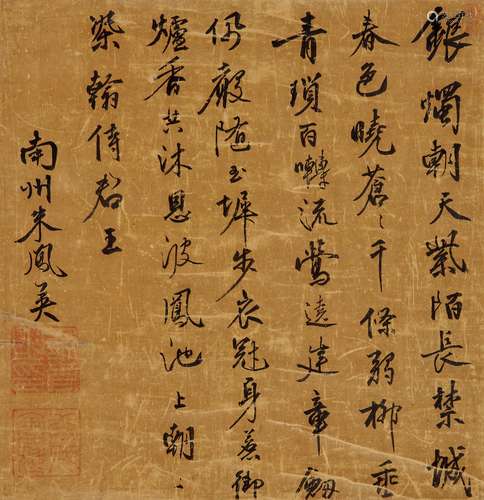 銀燭朝天紫陌長禁城
春色曉蒼〻千條弱柳垂
青瑣百囀流鶯遶建章劔
佩聲隨玉墀步衣冠身惹御
爐香共沐恩波鳳池上朝〻
染翰侍君王
南州朱鳳英